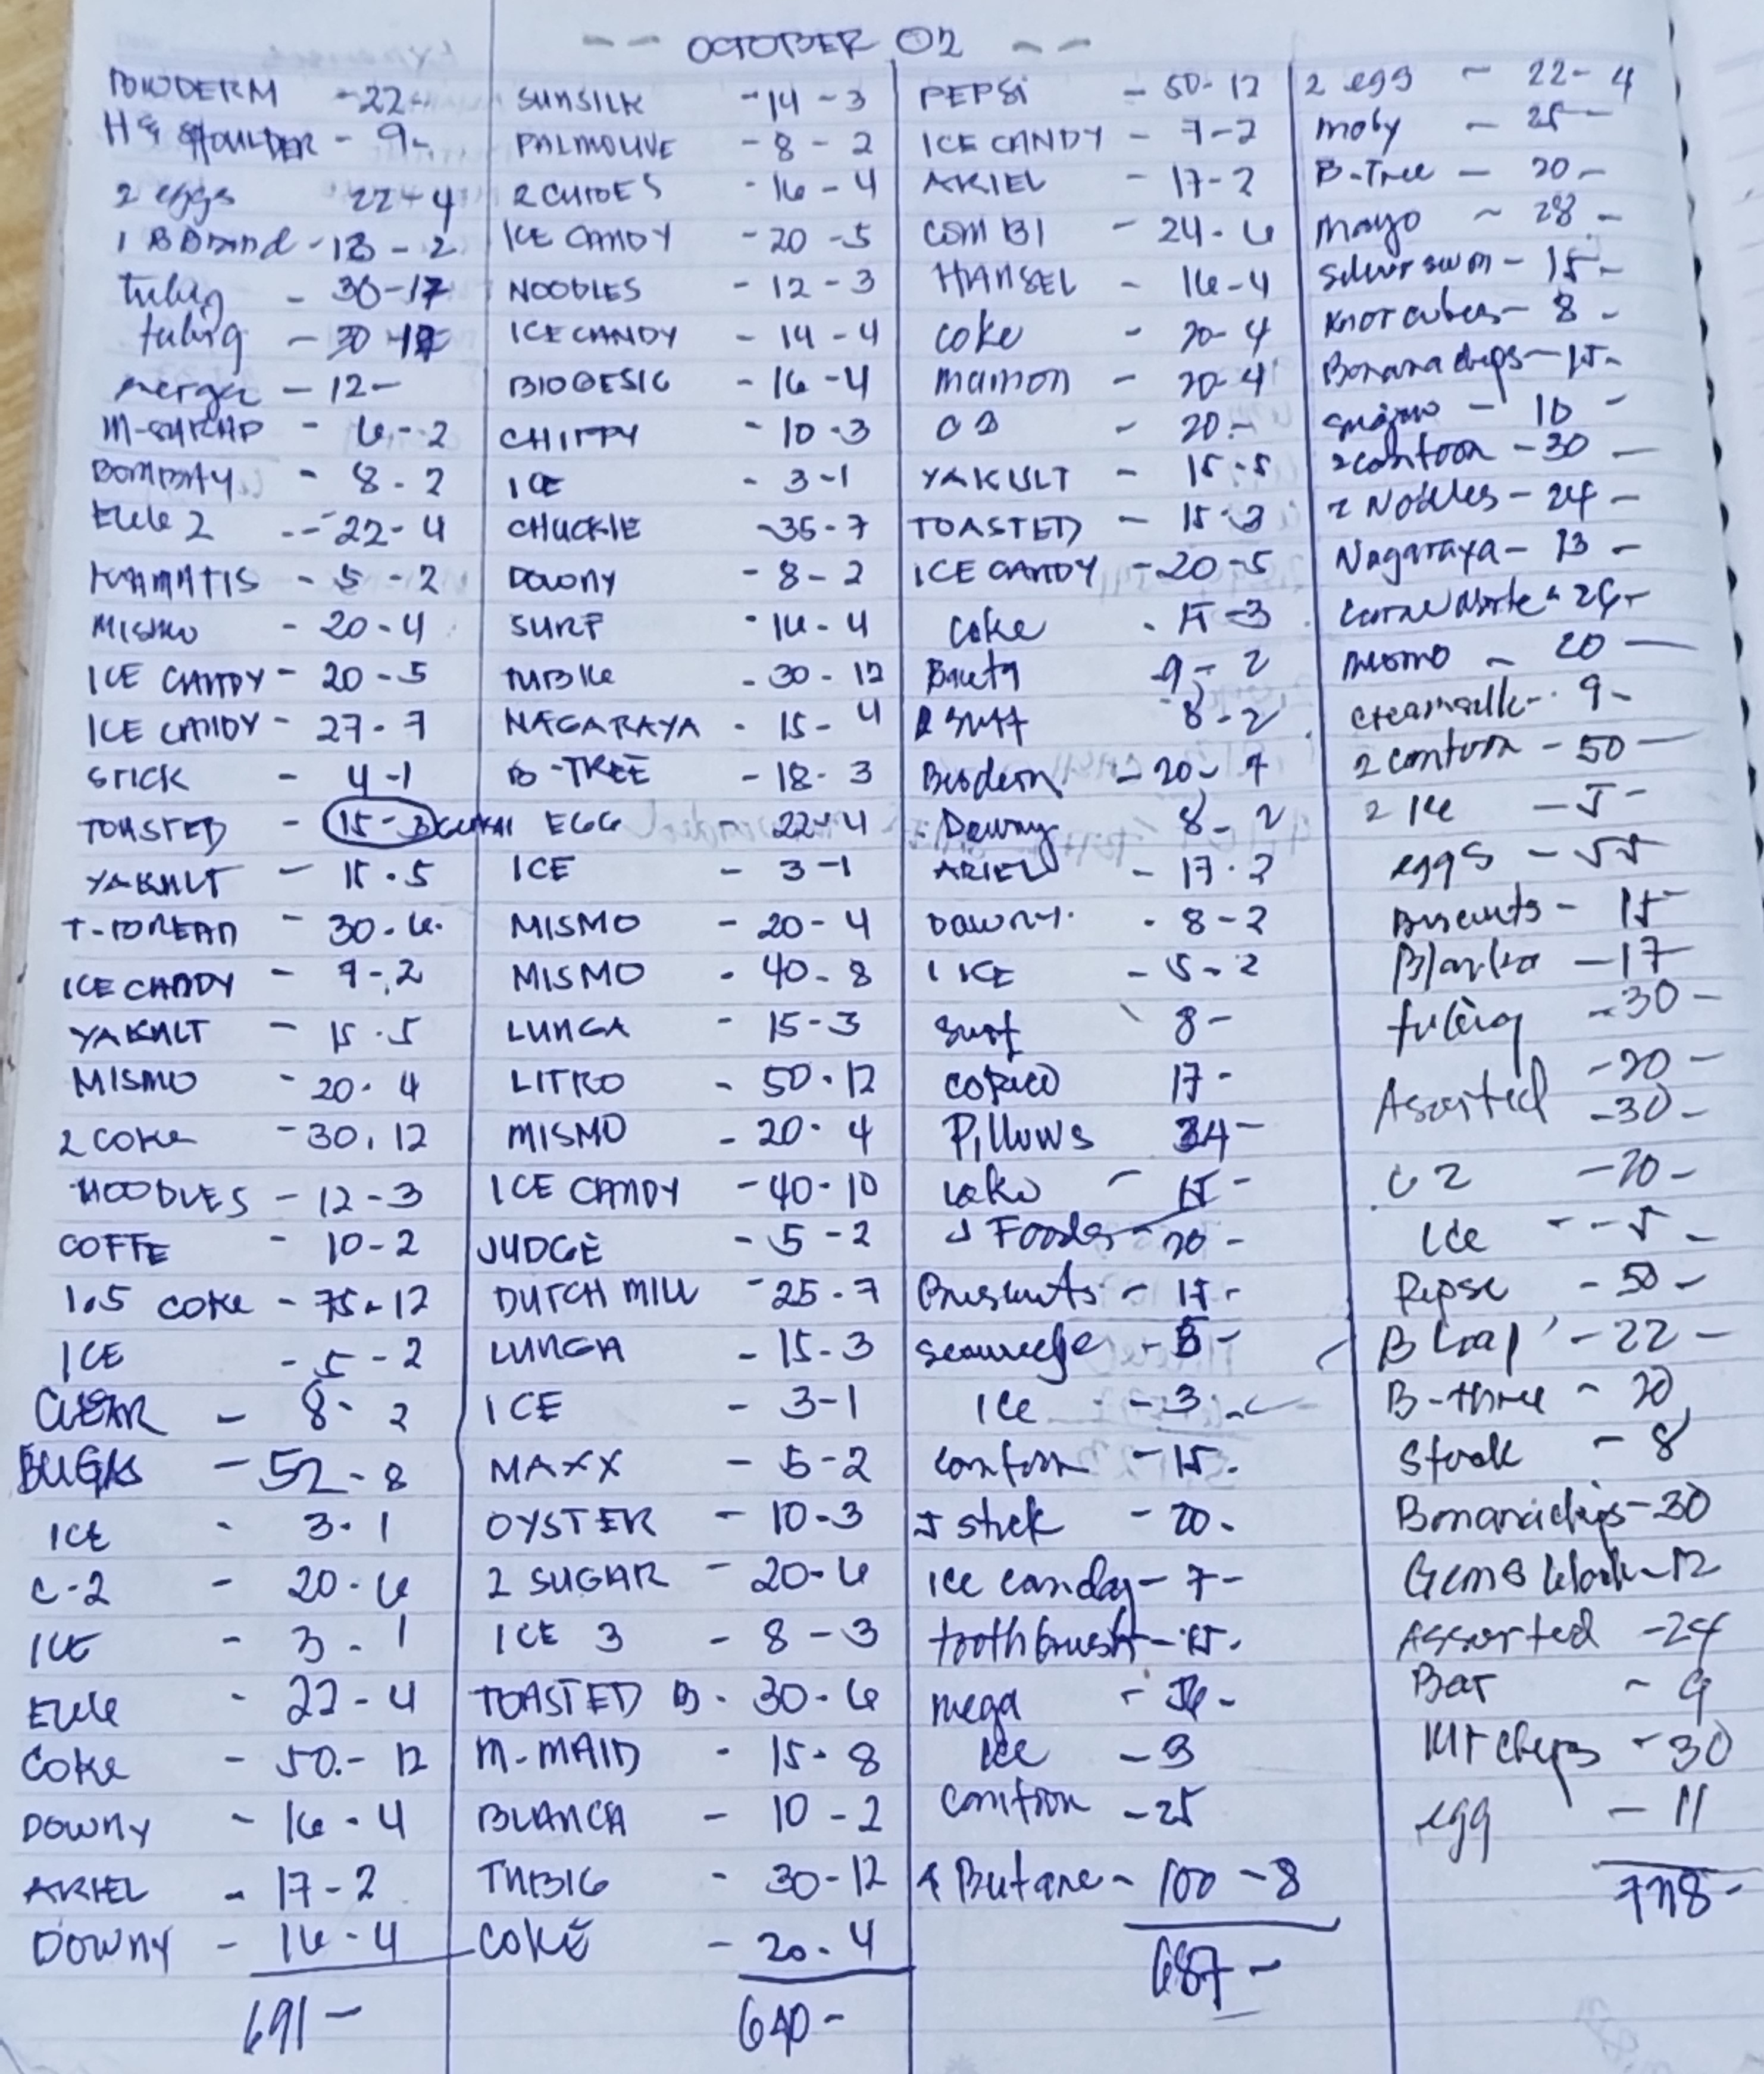 OCTOBER 02
- 22-
H & SHOULDER - 9-
2 eggs 22-4
1 B Brand - 13 - 2
tubig - 30-12
tubig - 30-12
- 12 -
M-SARAP - 6-2
BOMBAY - 8-2
2 -- 22-4
KAMATIS - 5-2
MISMO - 20-4
ICE CANDY - 20-5
ICE CANDY - 27-7
STICK - 4-1
TOASTED - 15-3
YAKULT - 15-5
- 30-6.
ICE CANDY - 9-2
YAKULT - 15-5
MISMO - 20-4
2 COKE - 30.12
NOODLES - 12-3
COFFE - 10-2
1.5 COKE - 75-12
ICE - 5-2
CLEAR - 8-2
- 52-8
ICE - 3-1
C-2 - 20-6
ICE - 3-1
- 22-4
COKE - 50.-12
DOWNY - 16-4
ARIEL - 17-2
DOWNY - 16-4
691-
SUNSILK - 14-3
PALMOLIVE - 8-2
- 16-4
ICE CANDY - 20-5
NOODLES - 12-3
ICE CANDY - 14-4
BIOGESIC - 16-4
CHIPPY - 10-3
ICE - 3-1
CHUCKIE - 35-7
DOWNY - 8-2
SURF - 16-4
TUBIG - 30-12
NAGARAYA - 15-4
B-TREE - 18-3
EGG - 22-4
ICE - 3-1
MISMO - 20-4
MISMO - 40-8
LUNGA - 15-3
LITRO - 50-12
MISMO - 20-4
ICE CANDY - 40-10
JUDGE - 5-2
DUTCH MILL - 25-7
LUNGA - 15-3
ICE - 3-1
MAXX - 5-2
OYSTER - 10-3
2 SUGAR - 20-6
ICE 3 - 8-3
TOASTED B - 30-6
M-MAID - 15-8
BLANCA - 10-2
TUBIG - 30-12
COKE - 20-4
640-
PEPSI - 50-12
ICE CANDY - 7-2
ARIEL - 17-2
COMBI - 24-6
HANSEL - 16-4
Coke - 20-4
Mamon - 20-4
C2 - 20-
YAKULT - 15-5
TOASTED - 15-3
ICE CANDY - 20-5
Coke - 15-3
- 9-2
Surf 8-2
Bioderm - 20-7
Downy 8-2
ARIEL - 17-2
DOWNY. - 8-2
1 ICE - 5-2
Surf 8-
Copico 17-
Pillows 34-
- 15-
J Foods - 20-
- 15-
- 5-
Ice - 3-
Canton - 15-
5 stick - 20-
Ice candy - 7-
toothbrush - 15-
mega -
Ice - 3
Canton - 25
4 Butane - 100-8
687-
2 egg - 22-4
Moby - 25-
B-Tree - 20-
Mayo - 28-
Silver swan - 15-
Knor cubes - 8-
Banana chips - 15-
- 10-
2 canton - 30-
2 Nodles - 24-
Nagaraya - 13-
- 24-
mismo - 20-
creamsilk - 9-
2 canton - 50-
2 Ice - 5-
eggs - 55
Biscuits - 15
Blanka - 17-
tubig - 30-
- 20-
Assorted - 30-
C2 - 20-
Ice - 5-
Pepse - 50-
B Loaf - 22-
B-three - 20
Stock - 8
Bananachips - 30
- 12
Assorted - 24
Bar - 9
- 30
egg - 11